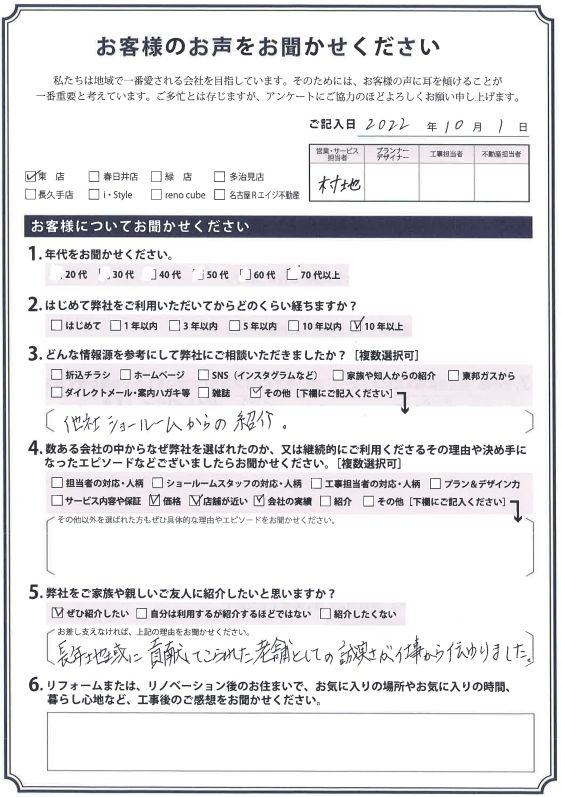 お客様のお声をお聞かせください
私たちは地域で一番愛される会社を目指しています。そのためには、お客様の声に耳を傾けることが
一番重要と考えています。ご多忙とは存じますが、アンケートにご協力のほどよろしくお願い申し上げます。
ご記入日 2022 年 10 月 1 日
営業・サービス担当者 プランナーデザイナー 工事担当者 不動産担当者
村地
☑東 店 □春日井店 □緑 店 □多治見店
□長久手店 □i・Style □reno cube □名古屋Rエイジ不動産
お客様についてお聞かせください
1. 年代をお聞かせください。
20代 30代 40代 50代 60代 70代以上
2. はじめて弊社をご利用いただいてからどのくらい経ちますか？
□はじめて □1年以内 □3年以内 □5年以内 □10年以内 ☑10年以上
3. どんな情報源を参考にして弊社にご相談いただきましたか？［複数選択可］
□折込チラシ □ホームページ □SNS（インスタグラムなど） □家族や知人からの紹介 □東邦ガスから
□ダイレクトメール・案内ハガキ等 □雑誌 ☑その他［下欄にご記入ください］
他社ショールームからの紹介。
4. 数ある会社の中からなぜ弊社を選ばれたのか、又は継続的にご利用くださるその理由や決め手に
なったエピソードなどございましたらお聞かせください。［複数選択可］
□担当者の対応・人柄 □ショールームスタッフの対応・人柄 □工事担当者の対応・人柄 □プラン＆デザイン力
□サービス内容や保証 ☑価格 ☑店舗が近い ☑会社の実績 □紹介 □その他［下欄にご記入ください］
その他以外を選ばれた方もぜひ具体的な理由やエピソードをお聞かせください。
5. 弊社をご家族や親しいご友人に紹介したいと思いますか？
☑ぜひ紹介したい □自分は利用するが紹介するほどではない □紹介したくない
お差し支えなければ、上記の理由をお聞かせください。
長年地域に貢献してこられた老舗としての誠実さが仕事から伝わりました。
6. リフォームまたは、リノベーション後のお住まいで、お気に入りの場所やお気に入りの時間、
暮らし心地など、工事後のご感想をお聞かせください。